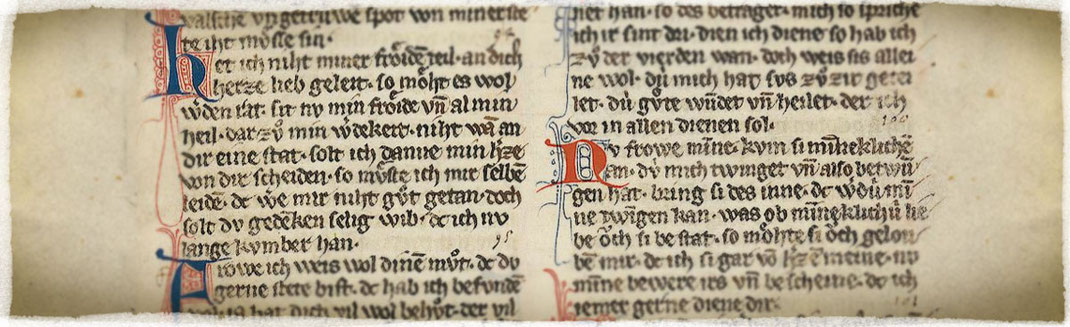 valsche vn̄ getruwe spot von miner ste
te iht mosse sin.
94
Het ich niht miner froide teil. an dich
herze lieb geleit. so moht es wol
wͬden rat. sit nv min froide vn̄ al min
heil. dar zvͦ min wͬdekeit. niht wā an
dir eine stat. solt ich danne min hͬze
von dir scheiden. so mvͤste ich mir selbē
leide. dc we mir niht gvͦt getan. doch
solt dv gedēken selig wib. dc ich nv
lange kvmber han.
95
Frowe ich weis wol dinē mvͦt. dc dv
gerne stete bist. dc hab ich befundē
hat dich vil wol behvͦt. der vil
net han. so des betraget. mich so spriche
ich ir sint dri. dien ich diene so hab ich
zvͦ der vierden wan. doch weis sis allei
ne wol. dú mich hat svs zvͦ zir getei
let. dú gvͦte wūdet vn̄ heilet. der ich
vor in allen dienen sol.
100
Nv frowe mīne. kvm si mīneklichē
an. dv́ mich twinget vn̄ also betwū
gen hat. bring si des inne. dc
ne twīgen kan. was ob mīneklichú lie
be ovch si be stat. so mohte si ovch gelou
ben mir. dc ich si gar vō hͬzē meine. nv
mīne bewere irs vn̄ be scheine. dc ich
iemer gerne diene dir.
101